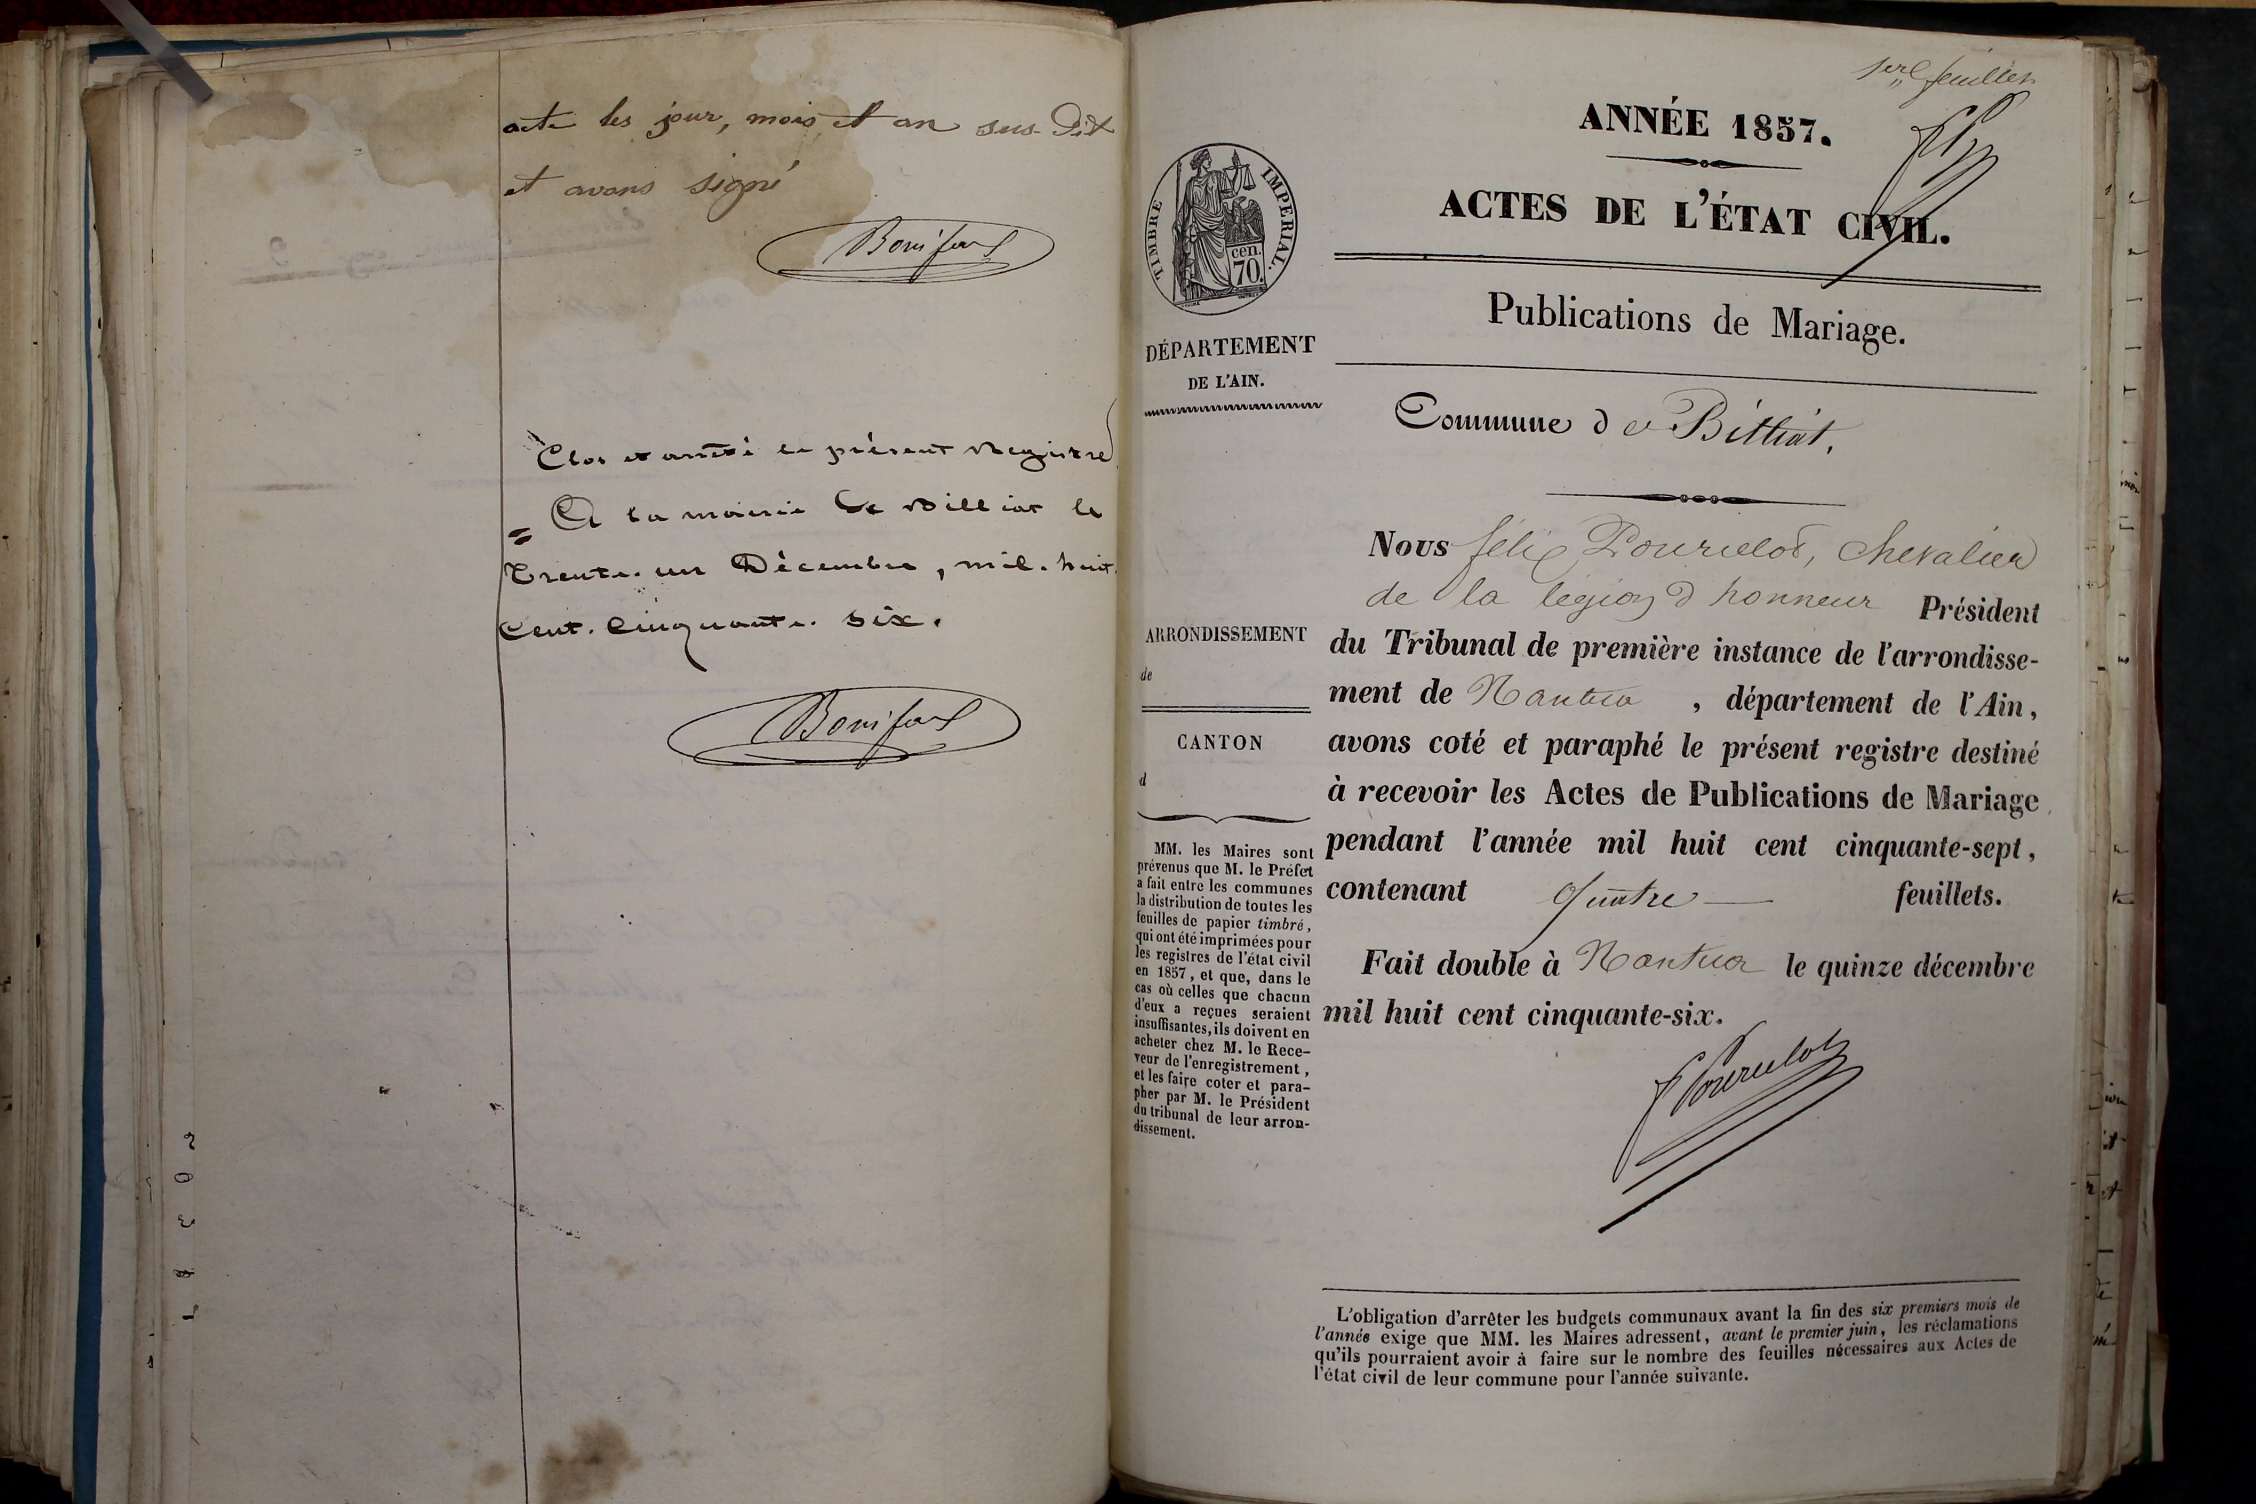 acte les jour, mois et an sus-dit
et avons signé
Bonifas
Clos et arrêté le présent Registre
A la mairie de Billiat le
trente-un Décembre, mil-huit-
cent-cinquante-six.
Bonifas
1er feuillet
ANNÉE 1857.
ACTES DE L'ÉTAT CIVIL.
Publications de Mariage.
TIMBRE IMPERIAL.
cen.
70.
DÉPARTEMENT
DE L'AIN.
Commune de Billiat.
Nous félix Pourcelot, chevalier
de la légion d honneur Président
du Tribunal de première instance de l'arrondisse-
ment de Nantua, département de l'Ain,
avons coté et paraphé le présent registre destiné
à recevoir les Actes de Publications de Mariage
pendant l'année mil huit cent cinquante-sept,
contenant quatre feuillets.
Fait double à Nantua le quinze décembre
mil huit cent cinquante-six.
ARRONDISSEMENT
de
CANTON
d
MM. les Maires sont
prévenus que M. le Préfet
a fait entre les communes
la distribution de toutes les
feuilles de papier timbré,
qui ont été imprimées pour
les registres de l'état civil
en 1857, et que, dans le
cas où celles que chacun
d'eux a reçues seraient
insuffisantes, ils doivent en
acheter chez M. le Rece-
veur de l'enregistrement,
et les faire coter et para-
pher par M. le Président
du tribunal de leur arron-
dissement.
L'obligation d'arrêter les budgets communaux avant la fin des six premiers mois de
l'année exige que MM. les Maires adressent, avant le premier juin, les réclamations
qu'ils pourraient avoir à faire sur le nombre des feuilles nécessaires aux Actes de
l'état civil de leur commune pour l'année suivante.